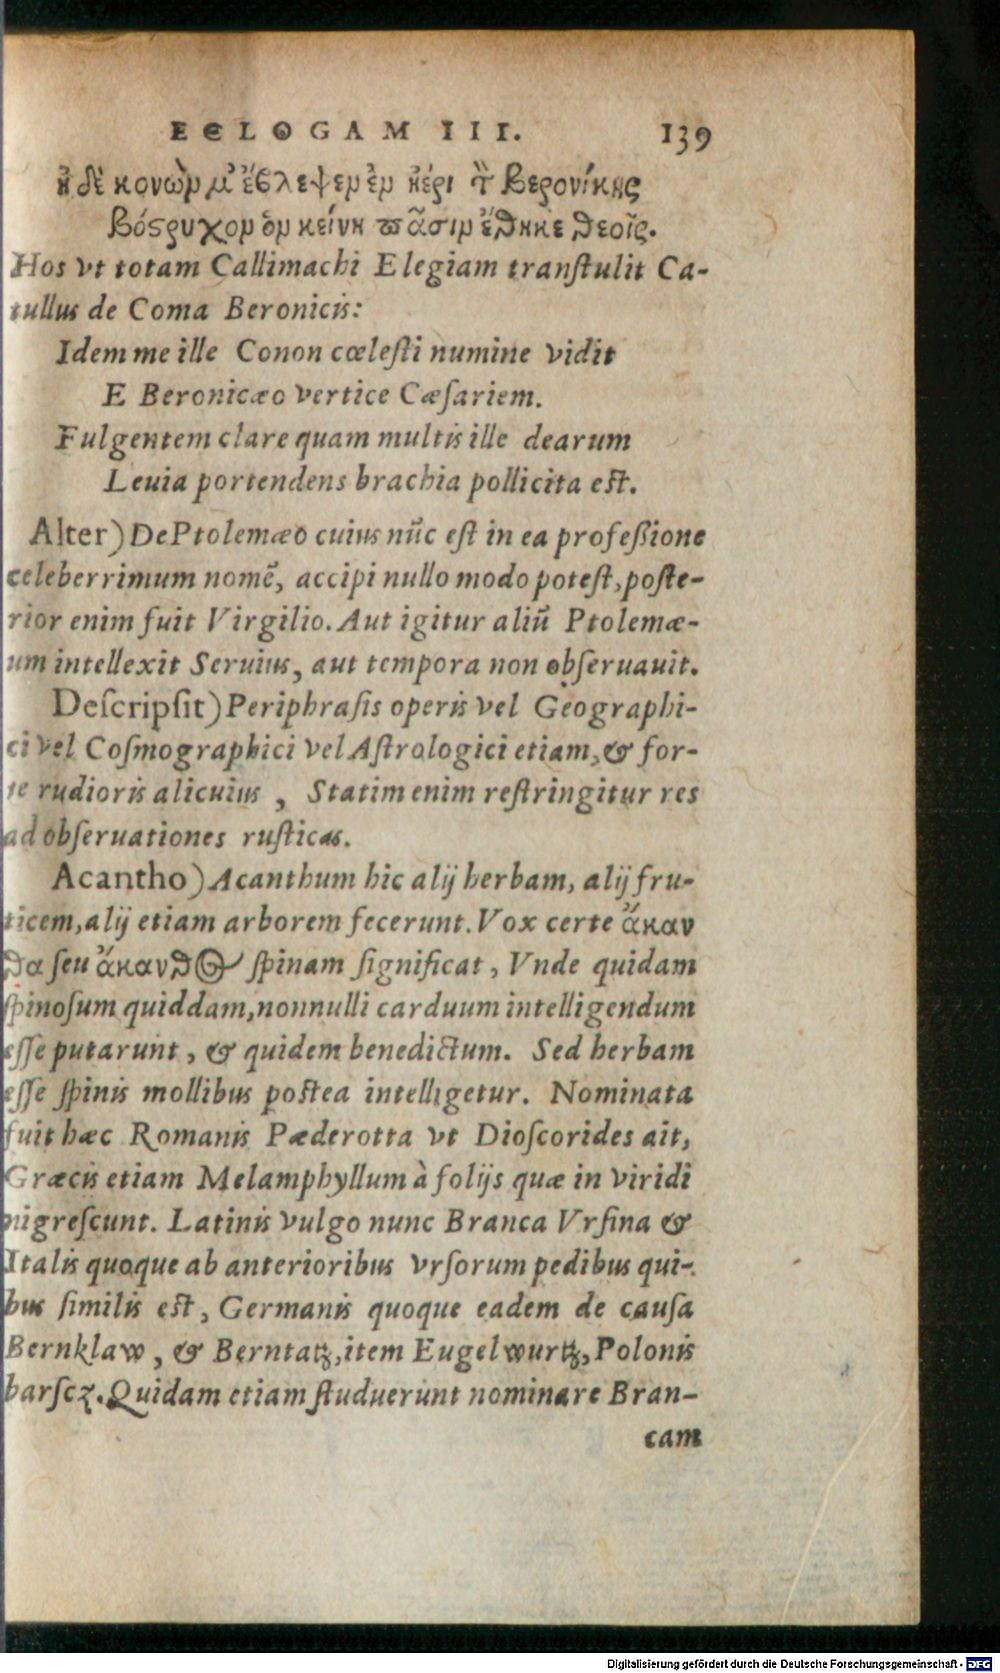 ECLOGAM III. 139
ἠδὲ κονὼν μ' ἔβλεψεν ἐν ἠέρι τ̀ Βερονίκης
Βόστρυχον ὃν κείνη πᾶσιν ἔθηκε θεοῖς.
Hos vt totam Callimachi Elegiam tranſtulit Ca-
tullus de Coma Beronicis:
Idem me ille Conon cœleſti numine vidit
E Beronicæo vertice Cæſariem.
Fulgentem clare quam multis ille dearum
Leuia portendens brachia pollicita eſt.
Alter) De Ptolemæo cuius nūc eſt in ea profeßione
celeberrimum nomē, accipi nullo modo poteſt, poſte-
rior enim fuit Virgilio. Aut igitur aliū Ptolemæ-
um intellexit Seruius, aut tempora non obſeruauit.
Deſcripſit) Periphraſis operis vel Geographi-
ci vel Coſmographici vel Aſtrologici etiam, & for-
te rudioris alicuius, Statim enim reſtringitur res
ad obſeruationes ruſticas.
Acantho) Acanthum hic alij herbam, alij fru-
ticem, alij etiam arborem fecerunt. Vox certe ἄκαν
θα ſeu ἄκανθος ſpinam ſignificat, Vnde quidam
ſpinoſum quiddam, nonnulli carduum intelligendum
eſſe putarunt, & quidem benedictum. Sed herbam
eſſe ſpinis mollibus poſtea intelligetur. Nominata
fuit hæc Romanis Pæderotta vt Dioſcorides ait,
Græcis etiam Melamphyllum à folijs quæ in viridi
nigreſcunt. Latinis vulgo nunc Branca Vrſina &
Italis quoque ab anterioribus vrſorum pedibus qui-
bus ſimilis eſt, Germanis quoque eadem de cauſa
Bernklaw, & Berntatz, item Eugelwurtz, Polonis
barſcz. Quidam etiam ſtuduerunt nominare Bran-
cam
Digitalisierung gefördert durch die Deutsche Forschungsgemeinschaft - DFG